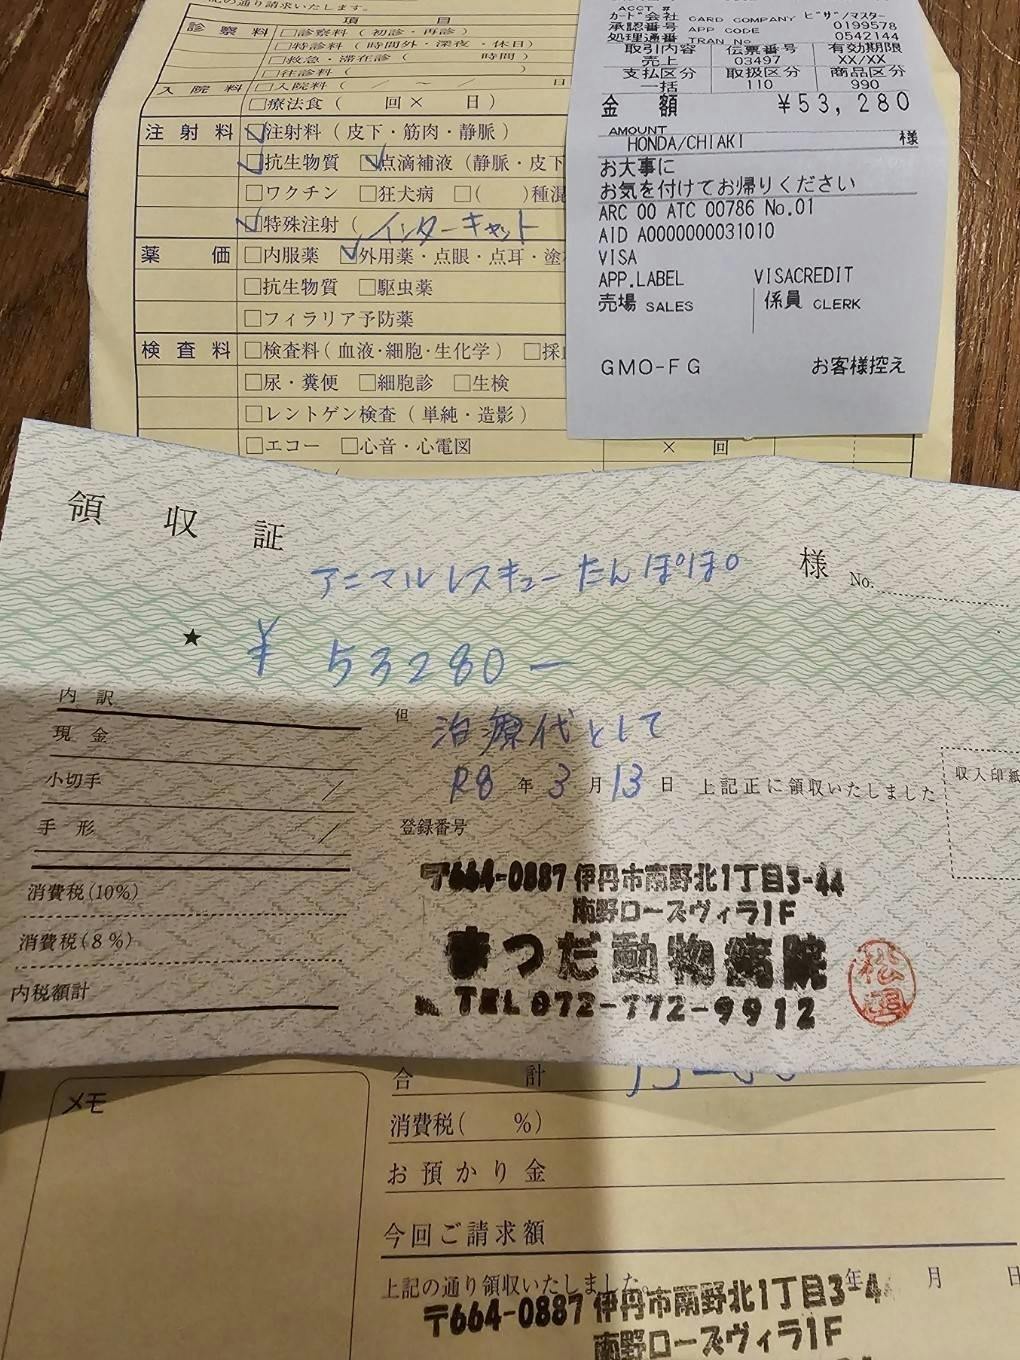 の通り請求いたします。
項 目
診察料 □診察料（初診・再診）
□特診料（時間外・深夜・休日）
□救急・滞在診（ 時間）
□往診料（ ）
入院料 □入院料（ ／ ～ ／ 日
□療法食（ 回× 日）
注射料 ☑注射料（皮下・筋肉・静脈）
☑抗生物質 ☑点滴補液（静脈・皮下
□ワクチン □狂犬病 □（ ）種混
☑特殊注射（インターキャット
薬価 □内服薬 ☑外用薬・点眼・点耳・塗
□抗生物質 □駆虫薬
□フィラリア予防薬
検査料 □検査料（血液・細胞・生化学） □採血
□尿・糞便 □細胞診 □生検
□レントゲン検査（単純・造影）
□エコー □心音・心電図
× 回
ACCT #
カード会社 CARD COMPANY ビザ/マスター
承認番号 APP CODE 0199578
処理通番 TRAN No 0542144
取引内容 伝票番号 有効期限
売上 03497 XX/XX
支払区分 取扱区分 商品区分
一括 110 990
金 額 ¥53,280
AMOUNT
HONDA/CHIAKI 様
お大事に
お気を付けてお帰りください
ARC 00 ATC 00786 No.01
AID A0000000031010
VISA
APP.LABEL VISACREDIT
売場 SALES 係員 CLERK
GMO-FG お客様控え
領収証
アニマルレスキューたんぽぽ 様 No.
★ ¥53280ー
内訳
現金
小切手 ／
手形 ／
消費税(10%)
消費税(8%)
内税額計
但 治療代として
R8年3月13日 上記正に領収いたしました
収入印紙
登録番号
〒664-0887 伊丹市南野北1丁目3-44
南野ローズヴィラ1F
まつだ動物病院
TEL 072-772-9912
メモ
合 計
消費税( %)
お預かり金
今回ご請求額
上記の通り領収いたしました。 年 月 日
〒664-0887 伊丹市南野北1丁目3-44
南野ローズヴィラ1F